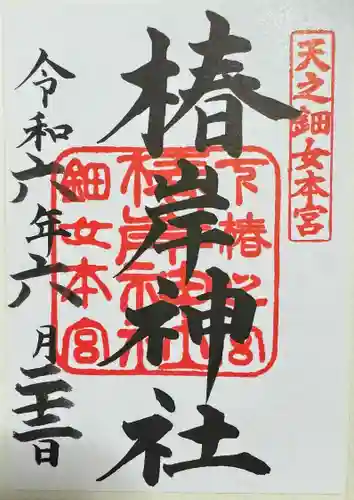 天之鈿女本宮
椿岸神社
下椿之宮
椿岸神社
鈿女本宮
令和六年六月二十三日